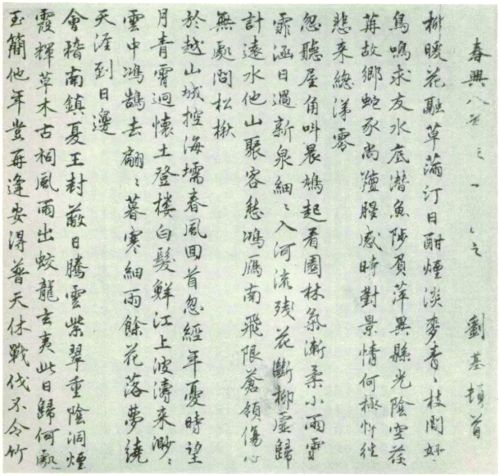 春興八首之一 劉基頓首
柳暖花融草滿汀日酣煙淡麥青々枝間好
鳥鳴求友水底潛魚陟負萍異縣光陰空荏
苒故鄉蛇豕尚羶腥感時對景情何極忤往
悲来總涕零
忽聽屋角叫晨鳩起看園林氣漸柔小雨霏
霏涵日過新泉細々入河流残花斷柳虛歸
計遠水他山聚客愁鴻雁南飛限蒼嶺傷心
無處問松楸
於越山城控海壖春風回首忽經年憂時望
月青霄迥懷土登樓白髮鮮江上波濤来渺々
雲中鴻鵠去翩々暮寒細雨餘花落夢繞
天涯到日邊
會稽南鎮夏王封蔽日騰雲紫翠重陰洞煙
霞輝草木古祠風雨出蛟龍玄夷此日歸何處
玉簡他年豈再逢安得普天休戰伐不令竹